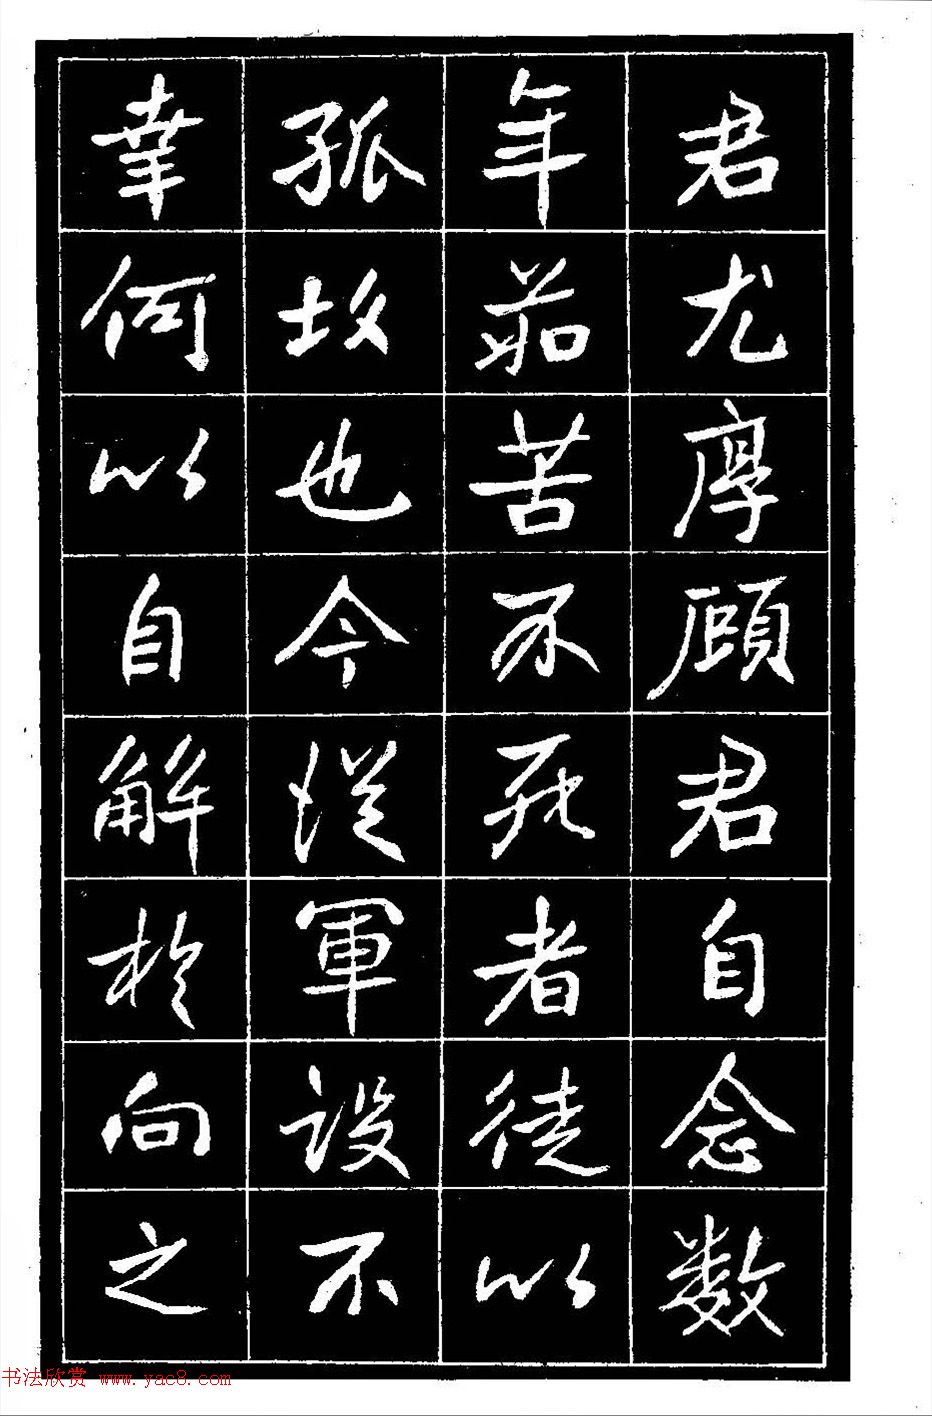 君尤厚顾君自念数
年茹苦不死者徒以
孤故也今從軍設不
幸何以自解於向之
书法欣赏 www.yac8.com